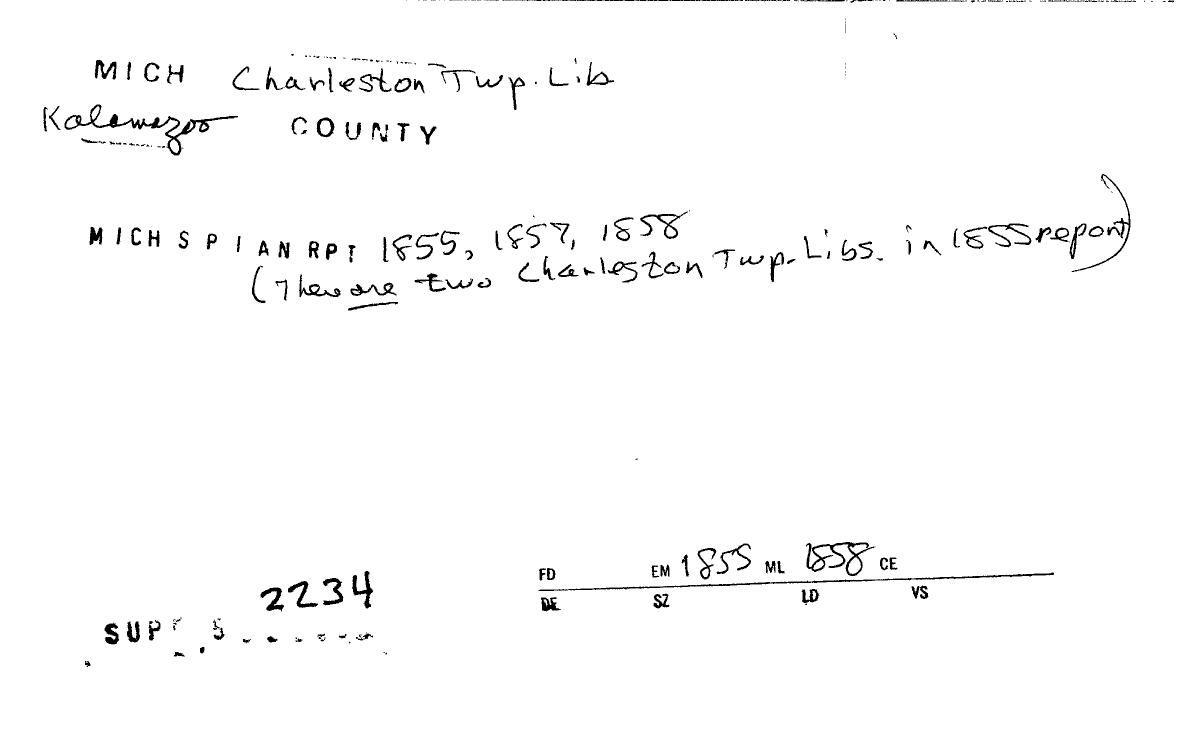 MICH Charleston Twp. Lib
Kalamazoo COUNTY
MICH S P I AN RPT 1855, 1857, 1858
(There are two Charleston Twp. Libs. in 1855 report)
FD EM 1855 ML 1858 CE
DE SZ LD VS
2234
SUP